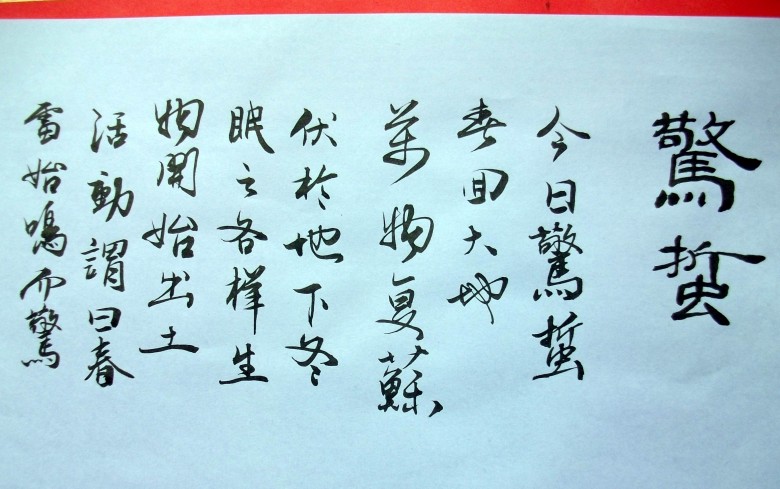 驚蟄
今日驚蟄
春回大地
萬物复蘇
伏於地下冬
眠之各樣生
物開始出土
活動謂曰春
雷始鳴而驚